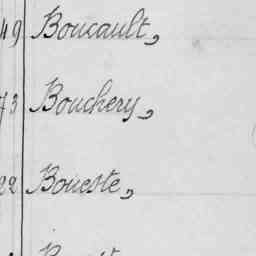 49 Boucault,
73 Bouchery,
22 Boueste,